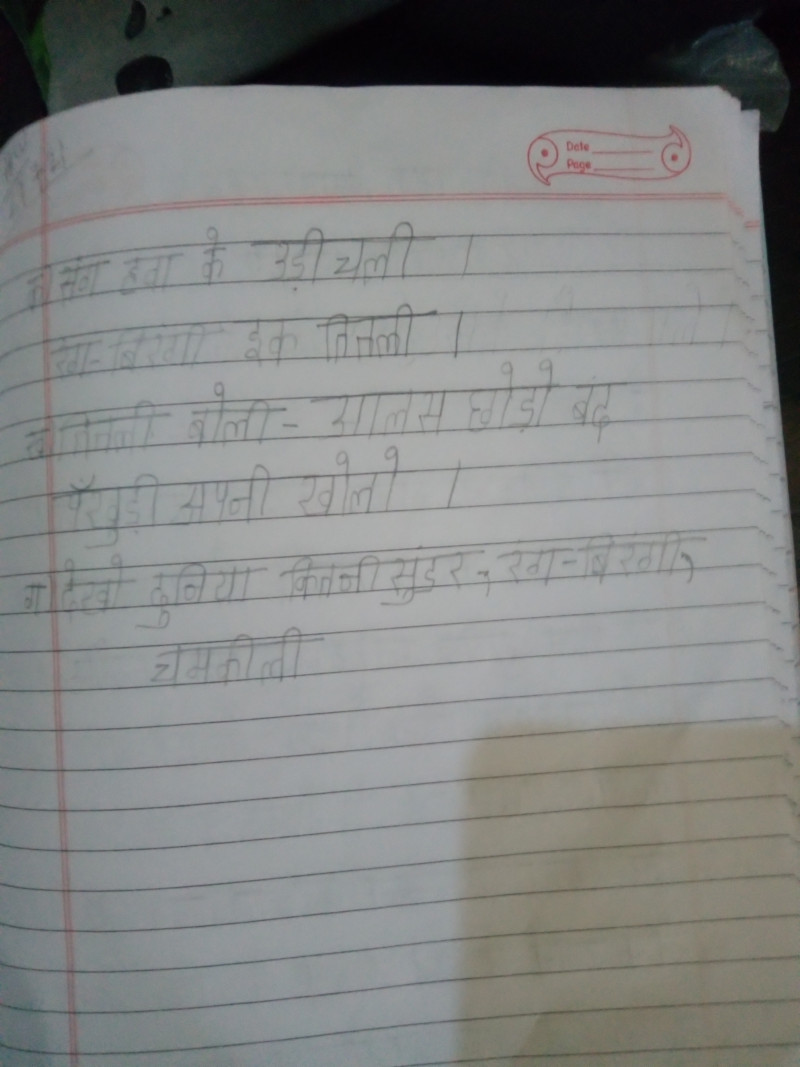 Date
Page
क संग हवा के उड़ी चली ।
रंग-बिरंगी इक तितली ।
ख तितली बोली - आलस छोड़ो बंद
पँखुड़ी अपनी खोलो ।
ग देखो दुनिया कितनी सुंदर, रंग-बिरंगी,
चमकीली